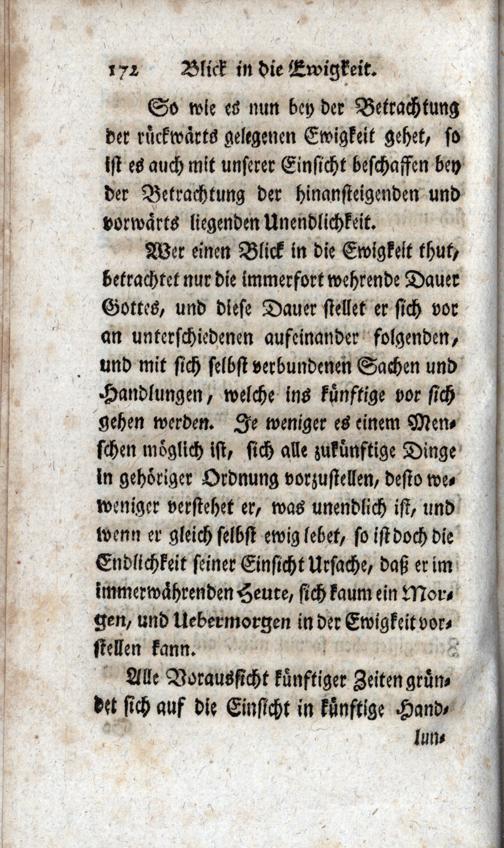 172 Blick in die Ewigkeit.
So wie es nun bey der Betrachtung
der rückwärts gelegenen Ewigkeit gehet, so
ist es auch mit unserer Einsicht beschaffen bey
der Betrachtung der hinansteigenden und
vorwärts liegenden Unendlichkeit.
Wer einen Blick in die Ewigkeit thut,
betrachtet nur die immerfort wehrende Dauer
Gottes, und diese Dauer stellet er sich vor
an unterschiedenen aufeinander folgenden,
und mit sich selbst verbundenen Sachen und
Handlungen, welche ins künftige vor sich
gehen werden. Je weniger es einem Men-
schen möglich ist, sich alle zukünftige Dinge
in gehöriger Ordnung vorzustellen, desto we-
weniger verstehet er, was unendlich ist, und
wenn er gleich selbst ewig lebet, so ist doch die
Endlichkeit seiner Einsicht Ursache, daß er im
immerwährenden Heute, sich kaum ein Mor-
gen, und Uebermorgen in der Ewigkeit vor-
stellen kann.
Alle Voraussicht künftiger Zeiten grün-
det sich auf die Einsicht in künftige Hand-
lun-